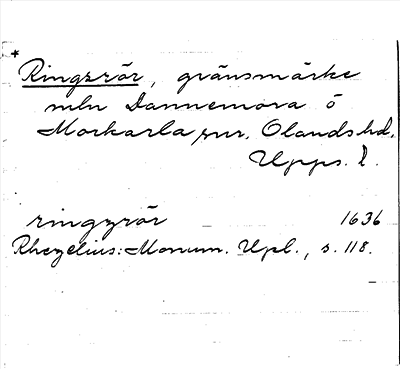 *
Ringzrör, gränsmärke
mln Dannemora o
Morkarla snr, Olands hd,
Upps. l.
ringzrör 1636
Rhezelius: Monum. Upl., s. 118.